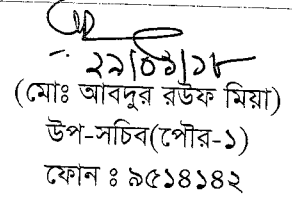 ২৯/০১/১৮
(মোঃ আবদুর রউফ মিয়া)
উপ-সচিব(পৌর-১)
ফোন ঃ ৯৫১৪১৪২